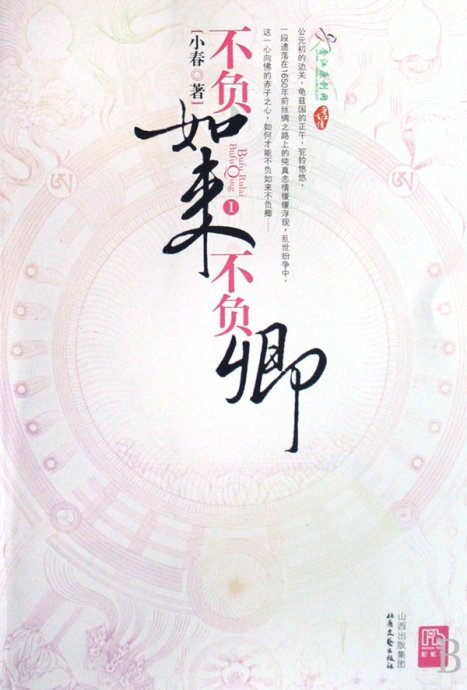 不负
如来
Bufu Rulai
Bufu Qing
1
不负
卿
[小春◎著]
晋江原创网
公元初的边关，龟兹国的正午，驼铃悠悠，
一段遗落在1650年前丝绸之路上的纯真恋情缓缓浮现，乱世纷争中，
这一心向佛的赤子之心，如何才能不负如来不负卿……
山西出版集团
北岳文艺出版社
B